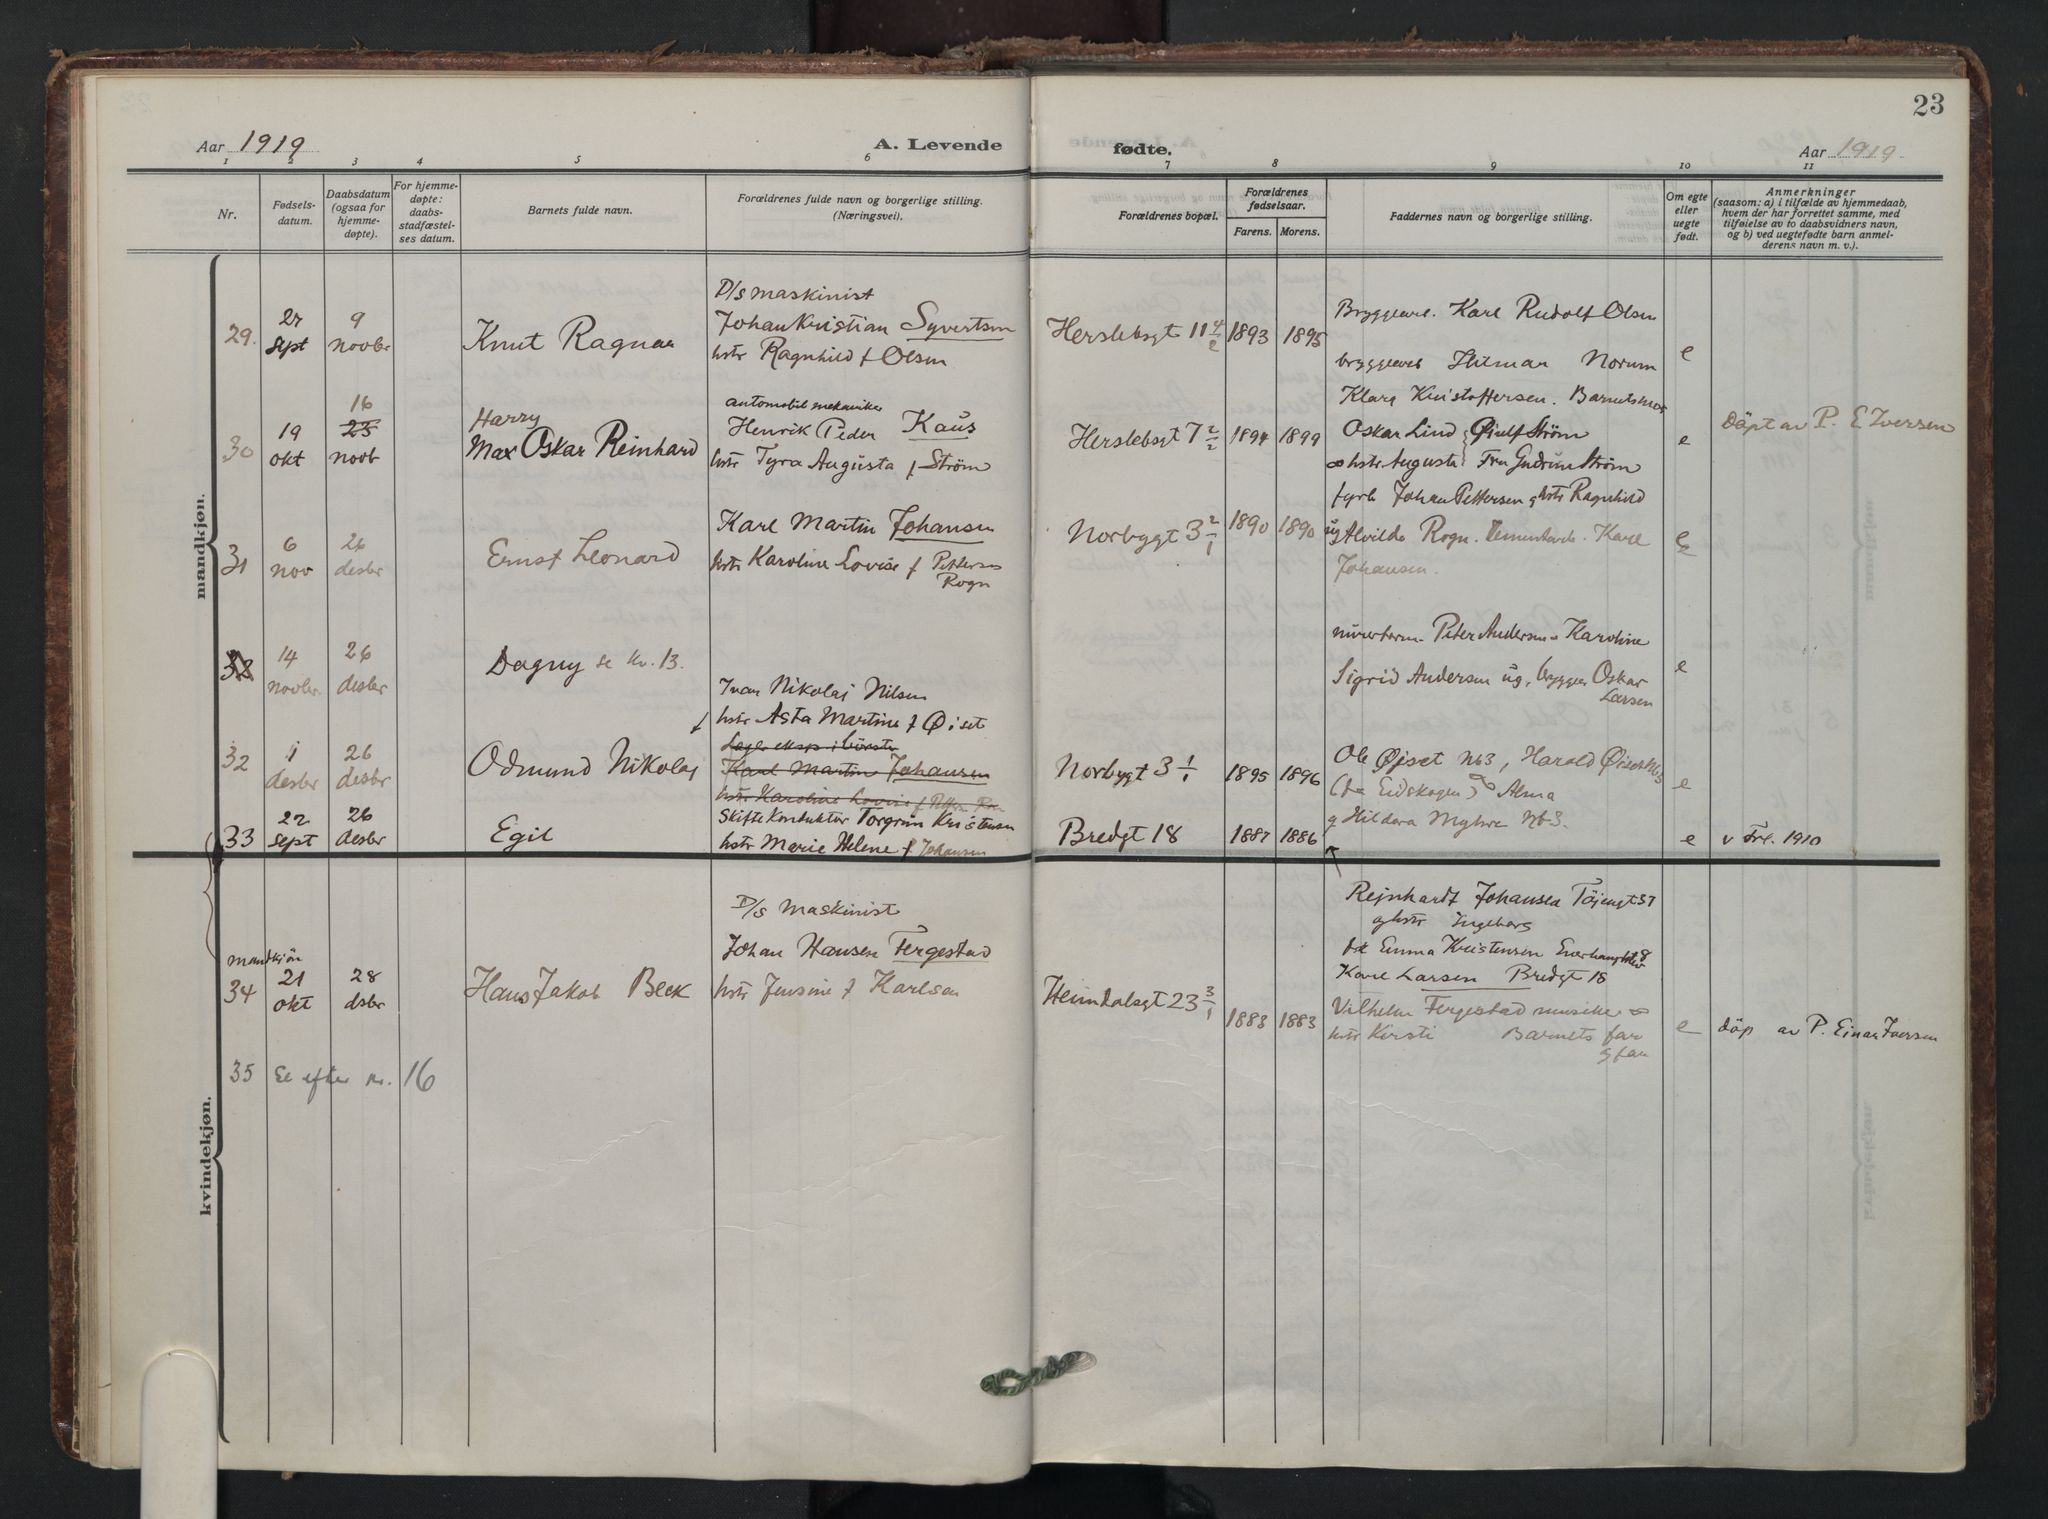 23
Aar 1919
A. Levende
fødte.
Aar 1919
1 2 3 4 5 6 7 8 9 10 11
Nr.
Fødsels-
datum.
Daabsdatum
(ogsaa for
hjemme-
døpte).
For hjemme-
døpte:
daabs-
stadfæstel-
ses datum.
Barnets fulde navn.
Forældrenes fulde navn og borgerlige stilling.
(Næringsvei).
Forældrenes bopæl.
Forældrenes
fødselsaar.
Farens. Morens.
Faddernes navn og borgerlige stilling.
Om egte
eller
uegte
født.
Anmerkninger
(saasom: a) i tilfælde av hjemmedaab,
hvem der har forrettet samme, med
tilføielse av to daabsvidners navn,
og b) ved uegtefødte barn anmel-
derens navn m. v.).
mandkjøn.
29.
27
sept
9
novbr
Knut Ragnar
D/s maskinist
Johan Kristian Syvertsen
hstr Ragnhild f Olsen
Herslebsgt 11 4/2
1893 1895
Bryggearb. Karl Rudolf Olsen
bryggearb Hilmar Norum
Klara Kristoffersen. Barnets mor
e
30
19
okt
16
25
novb
Harry
Max Oskar Reinhard
automobil mekaniker
Henrik Peder Kaus
hstr Tyra Augusta f Ström
Herslebsgt 7 2/2
1894 1899
Oskar Lind Ström
hstr Augusta Fru Gudrun Ström
e
Döpt av P. E Iversen
31
6
nov
26
desbr
Ernst Leonard
Karl Martin Johansen
hstr Karoline Lovise f Pettersen
Rogn
Norbygt 3 2/1
1890 1890
fyrb Johan Pettersen g hstr Ragnhild
ug Alvilde Rogn. Karl
Johansen.
e
14
novbr.
26
desbr
Dagny se Kv. 13.
Peter Andersen Karoline
Sigrid Andersen ug, Oskar
Larsen
e
32
1
desbr
26
desbr
Odmund Nikolaj
Ivar Nikolaj Nilsen
hstr Asta Martine f Øiset
Karl Martin Johansen
hstr Karoline Lovise f
Norbygt 3 1/1
1895 1896
Ole Øiset Nb3, Harald Øiset Nb3
(fra Eidskogen) Alma
g Hildora Myhre Nb3.
e
33
22
sept
26
desbr
Egil
Skiftekonduktör Torgrim Kristensen
hstr Marie Helene f Johansen
Bredgt 18
1887 1886
e
v Frl. 1910
Reinhardt Johansen Töiengt 37
g hstr Ingeborg
frk Emma Kristensen Enerhaugbk 8
Karl Larsen Bredgt 18
mandkjön
34
21
okt
28
dsbr
Hans Jakob Beck
D/s Maskinist
Johan Hansen Fergestad
hstr Jensine f Karlsen
Heimdalsgt 23 3/1
1883 1883
Vilhelm Fergestad musiker
hstr Kirsti Barnets far
e
döp av P. Einar Iversen
35 Se efter nr. 16
kvindekjøn.